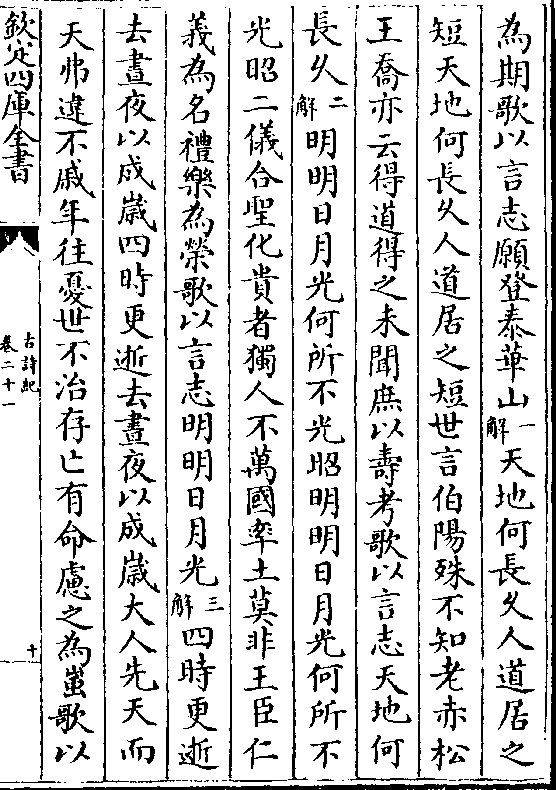 為期歌以言志願登泰華山一解天地何長久人道居之
短天地何長久人道居之短世言伯陽殊不知老赤松
王喬亦云得道得之未聞庶以壽考歌以言志天地何
長久二解明明日月光何所不光昭明明日月光何所不
光昭二儀合聖化貴者獨人不萬國率土莫非王臣仁
義為名禮樂為榮歌以言志明明日月光三解四時更逝
去晝夜以成歲四時更逝去晝夜以成歲大人先天而
天弗違不戚年往憂世不治存亡有命慮之為蚩歌以
欽定四庫全書
古詩紀
卷二十一
十